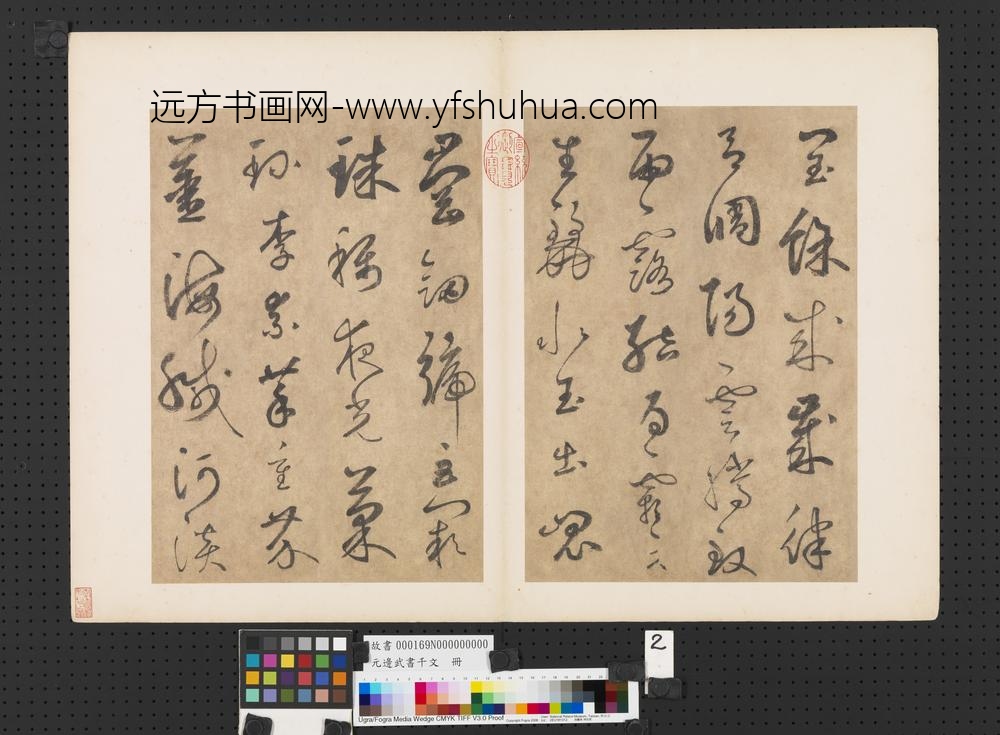 远方书画网-www.yfshuhua.com
閏餘成歲律
呂調陽雲騰致
雨露結為霜金
生麗水玉出崑
崗劍號巨闕
珠稱夜光菓
珍李柰菜重芥
薑海鹹河淡
故書 000169N000000000
元邊武書千文 冊
2
Ugra/Fogra Media Wedge CMYK TIFF V3.0 Proof